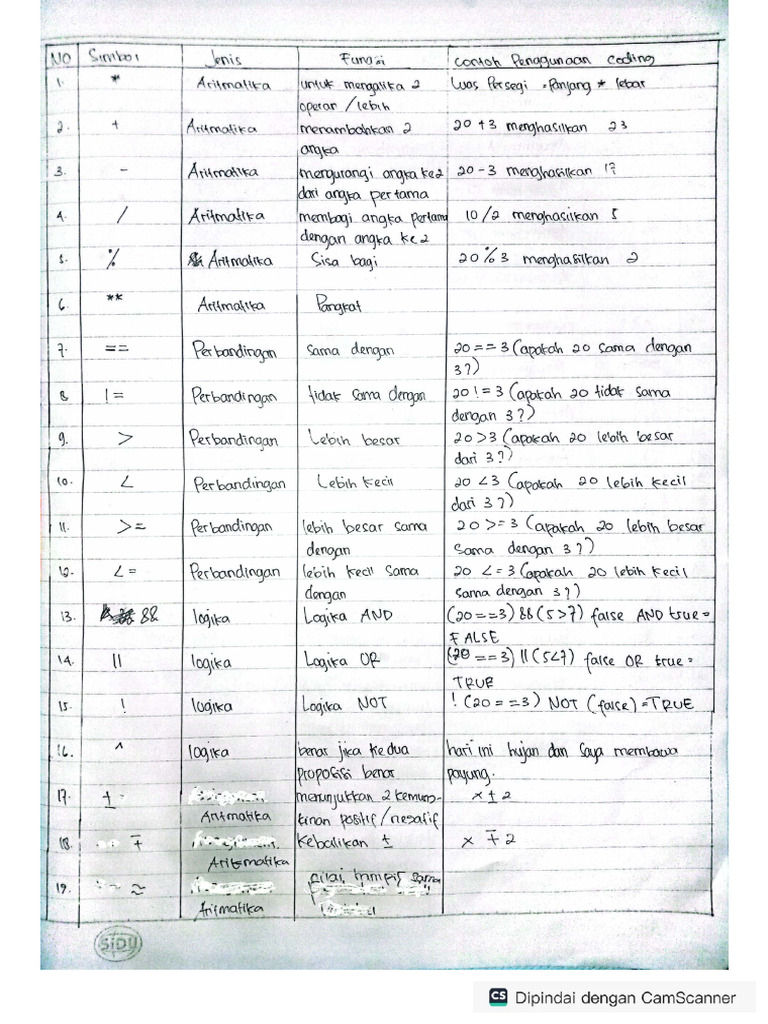 NO Simbol Jenis Fungsi Contoh Penggunaan coding
1. * Aritmatika untuk mengalika 2 Luas Persegi = Panjang * lebar
operan / lebih
2. + Aritmatika menambahkan 2 20 + 3 menghasilkan 23
angka
3. - Aritmatika mengurangi angka ke2 20 - 3 menghasilkan 17
dari angka pertama
4. / Aritmatika membagi angka pertama 10 / 2 menghasilkan 5
dengan angka ke 2
5. % Aritmatika Sisa bagi 20 % 3 menghasilkan 2
6. ** Aritmatika Pangkat
7. == Perbandingan sama dengan 20 == 3 (apakah 20 sama dengan
3?)
8. != Perbandingan tidak sama dengan 20 != 3 (apakah 20 tidak sama
dengan 3?)
9. > Perbandingan Lebih besar 20 >3 (apakah 20 lebih besar
dari 3?)
10. < Perbandingan Lebih kecil 20 <3 (apakah 20 lebih kecil
dari 3?)
11. >= Perbandingan lebih besar sama 20 >= 3 (apakah 20 lebih besar
dengan sama dengan 3?)
12. <= Perbandingan lebih kecil sama 20 <= 3 (apakah 20 lebih kecil
dengan sama dengan 3?)
13. && logika Logika AND (20 ==3) && (5>7) false AND true =
FALSE
14. || logika Logika OR (20 ==3) || (5<7) false OR true =
TRUE
15. ! logika Logika NOT ! (20 ==3) NOT (false) = TRUE
16. ^ logika benar jika kedua hari ini hujan dan saya membawa
proposisi benar payung.
17. ± Aritmatika menunjukkan 2 kemung- x ± 2
kinan positif / negatif
18. ∓ Aritmatika Kebalikan ± x ∓ 2
19. ≈ Aritmatika nilai hampir sama
SIDU
CS Dipindai dengan CamScanner